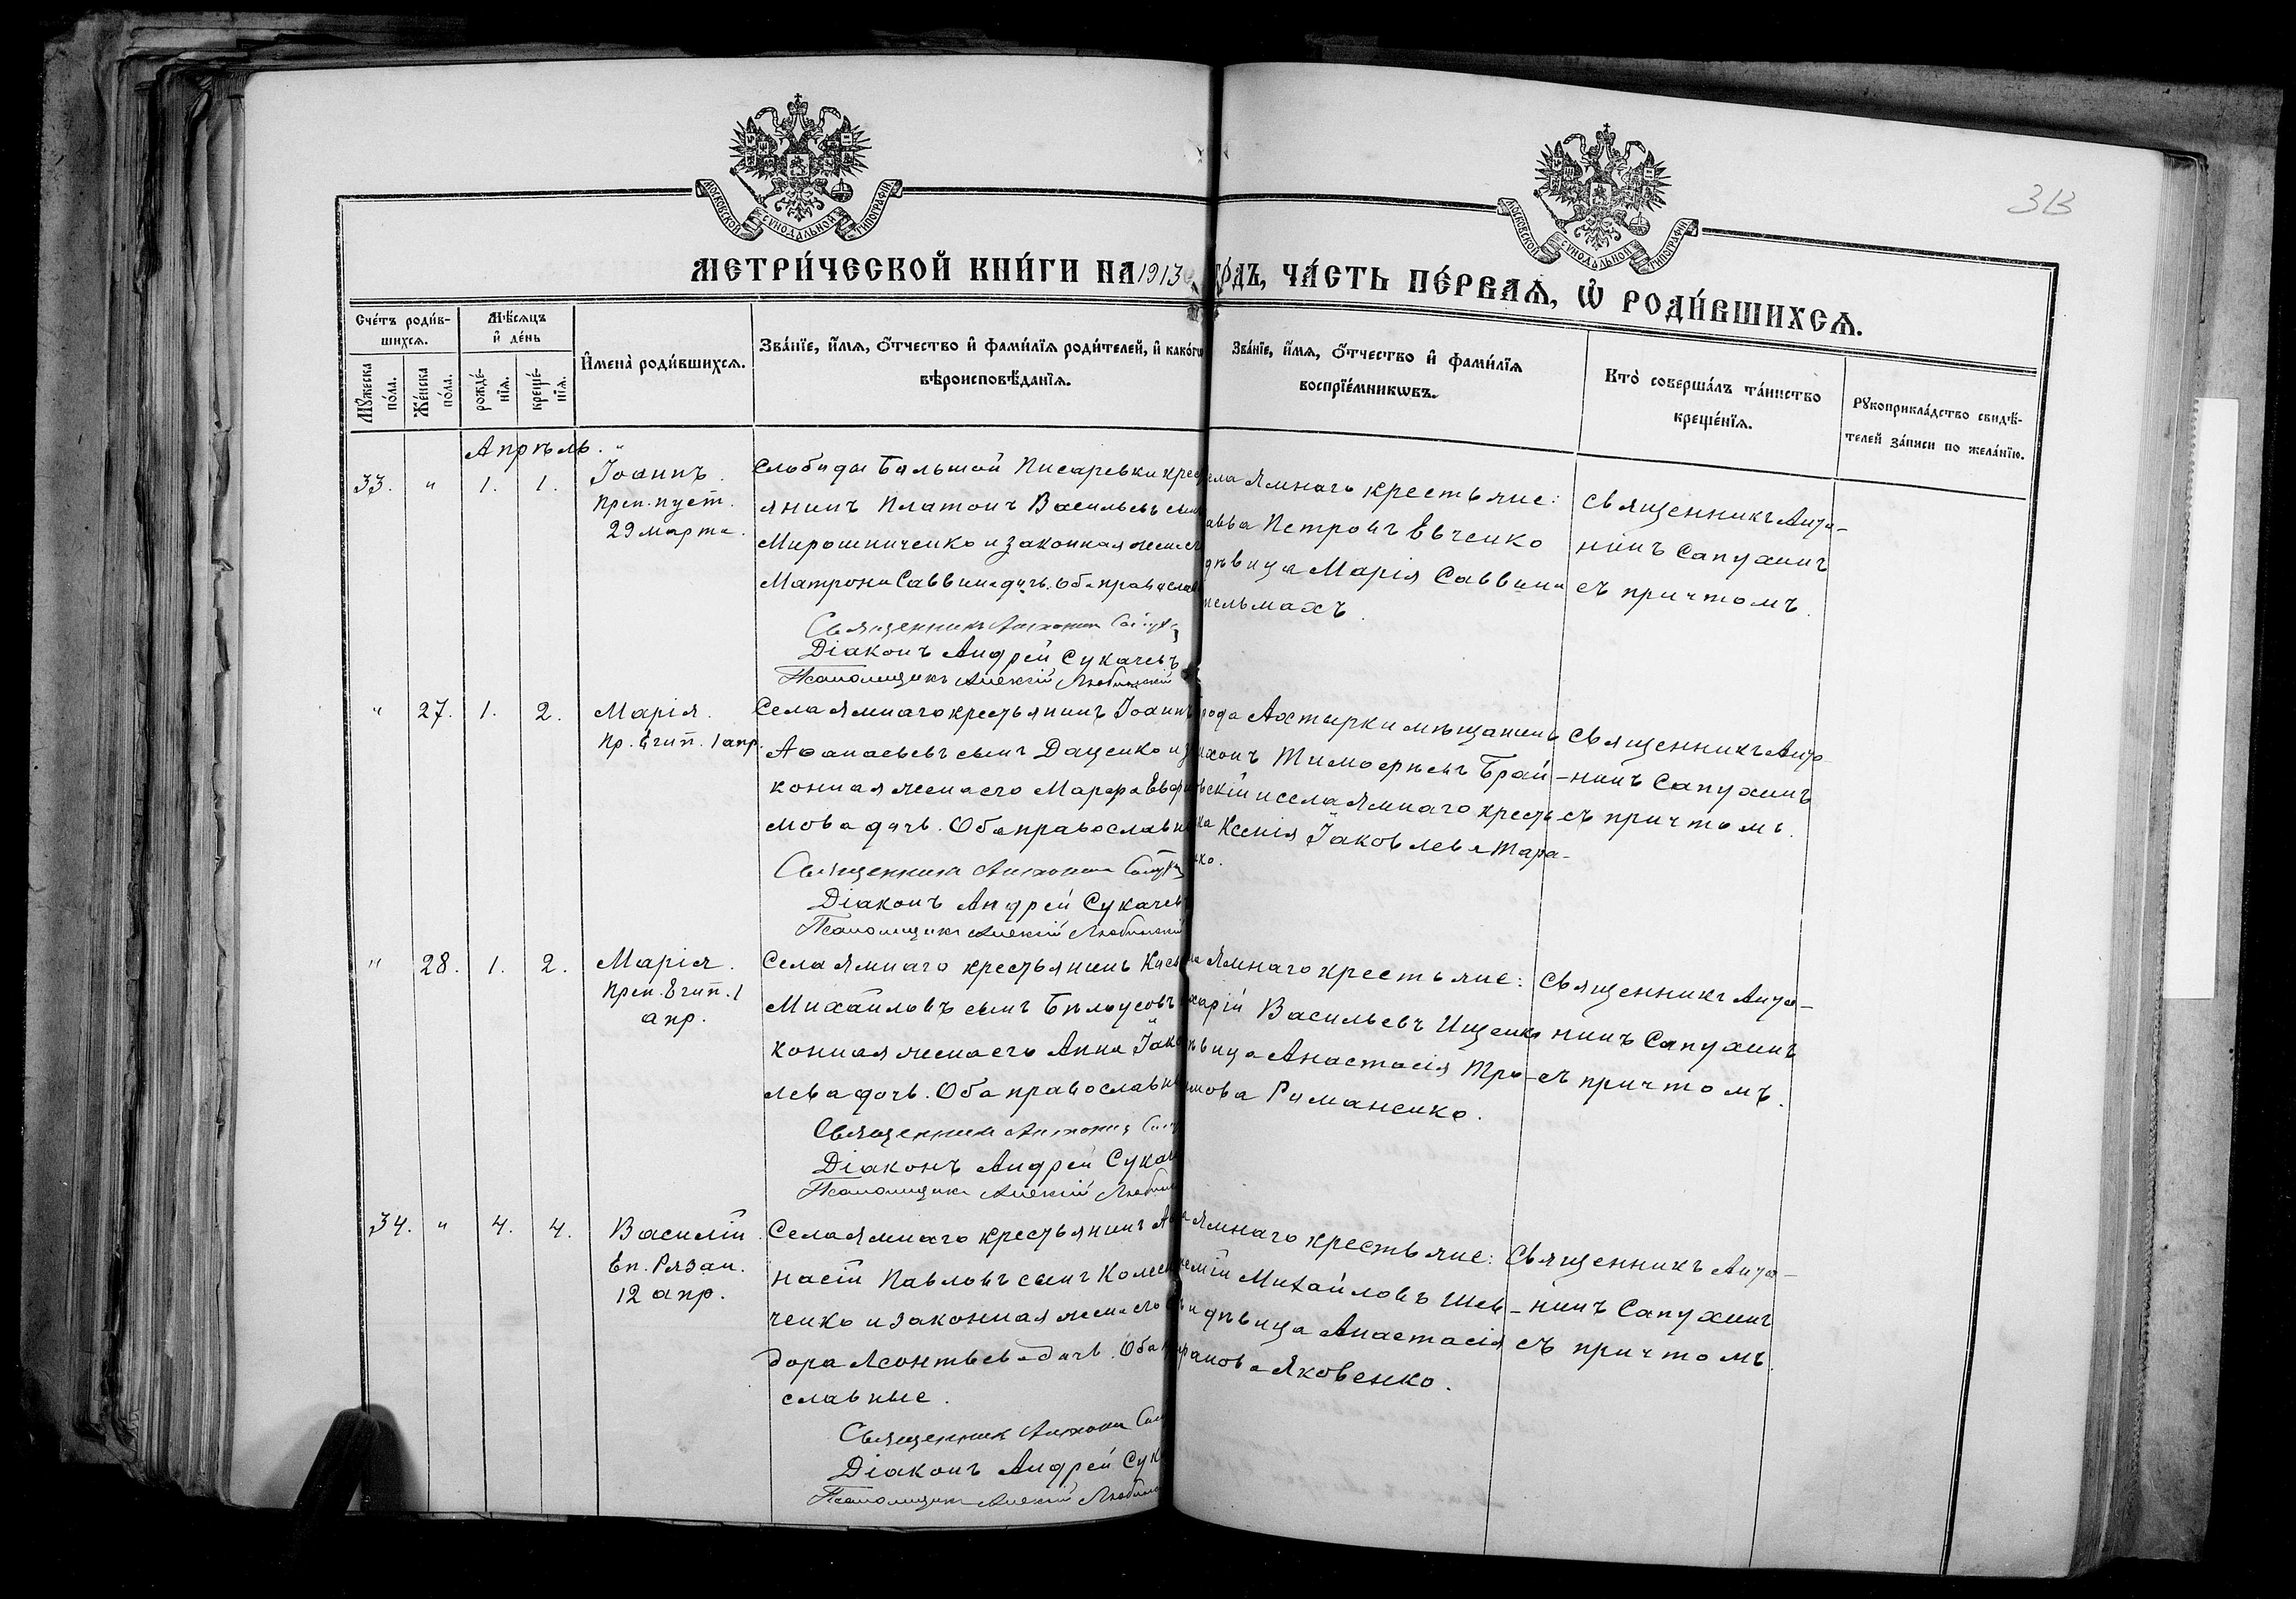 МОСКОВСКОЙ СУНОДАЛЬНОЙ ТИПОГРАФІИ
МОСКОВСКОЙ СУНОДАЛЬНОЙ ТИПОГРАФІИ
МЕТРИ́ЧЕСКОЙ КНИ́ГИ НА 1913 ГО́ДЪ, ЧА́СТЬ ПЕ́РВАѦ, Ѡ҆ РОДИ́ВШИХСѦ.
Сче́тъ роди́в-
шихсѧ.
Мꙋ́жеска по́ла.
Же́нска по́ла.
Мѣ́сѧцъ
и҆ де́нь
рожде́-нїѧ.
креще́-нїѧ.
И҆мена̀ роди́вшихсѧ.
Зва́нїе, и҆́мѧ, ѻ҆́тчество и҆ фами́лїѧ роди́телей, и҆ како́гѡ
вѣроисповѣ́данїѧ.
Зва́нїе, и҆́мѧ, ѻ҆́тчество и҆ фами́лїѧ
воспрїе́мникѡвъ.
Кто̀ соверша́лъ та́инство
креще́нїѧ.
Рꙋкоприкла́дство свидѣ́-
телей за́писи по жела́нїю.
Апрѣль.
33. " 1. 1.
Іоаннъ.
Преп. пуст.
29 марта.
Слободы Большой Писаревки крест
янинъ Платонъ Васильевъ сынъ
Мирошниченко и законная жена его
Матрона Саввина дочь. Оба правосла
Священникъ Антонин
Діаконъ Андрей Сукачевъ
Псаломщикъ Алексій
ела Ямнаго крестьяне:
авва Петровъ Евченко
дѣвица Марія Саввина
нельмахъ.
Священникъ Анто-
нинъ Сапухинъ
съ причтомъ.
" 27. 1. 2.
Марія.
Пр. Егип. 1 апр.
Села Ямнаго крестьянинъ Іоаннъ
Аѳанасьевъ сынъ Даценко и з
конная жена его Марфа Евфи
мова дочь. Оба православн
Священникъ Антонин
Діаконъ Андрей Сукачев
Псаломщикъ Алексій
рода Ахтырки мѣщанинъ
ихонъ Тимоѳеевъ Брай-
вскій и села Ямнаго кресть
ка Ксенія Іаковлева Тара-
нко.
Священникъ Анто
нинъ Сапухинъ
съ причтомъ.
" 28. 1. 2.
Марія.
Преп. Егип. 1
апр.
Села Ямнаго крестьянинъ
Михаиловъ сынъ Бѣлоусовъ
конная жена его Анна Іако
лева дочь. Оба православн
Священникъ Антонин
Діаконъ Андрей Сукач
Псаломщикъ Алексій
ла Ямнаго крестьяне:
харій Васильевъ Ищенко
ѣвица Анастасія Тро-
имова Романенко.
Священникъ Анто-
нинъ Сапухинъ
съ причтомъ.
34. " 4. 4.
Василій
Еп. Рязан.
12 апр.
Села Ямнаго крестьянинъ
насій Павловъ сынъ Колесн
ченко и законная жена его
дора Леонтьева дочь. Оба
славные.
Священник Антонин
Діаконъ Андрей Сук
Псаломщикъ Алексій
Ямнаго крестьяне:
Михайловъ Шев-
и дѣвица Анастасія
Яковенко.
Священникъ Анто-
нинъ Сапухинъ
съ причтомъ.